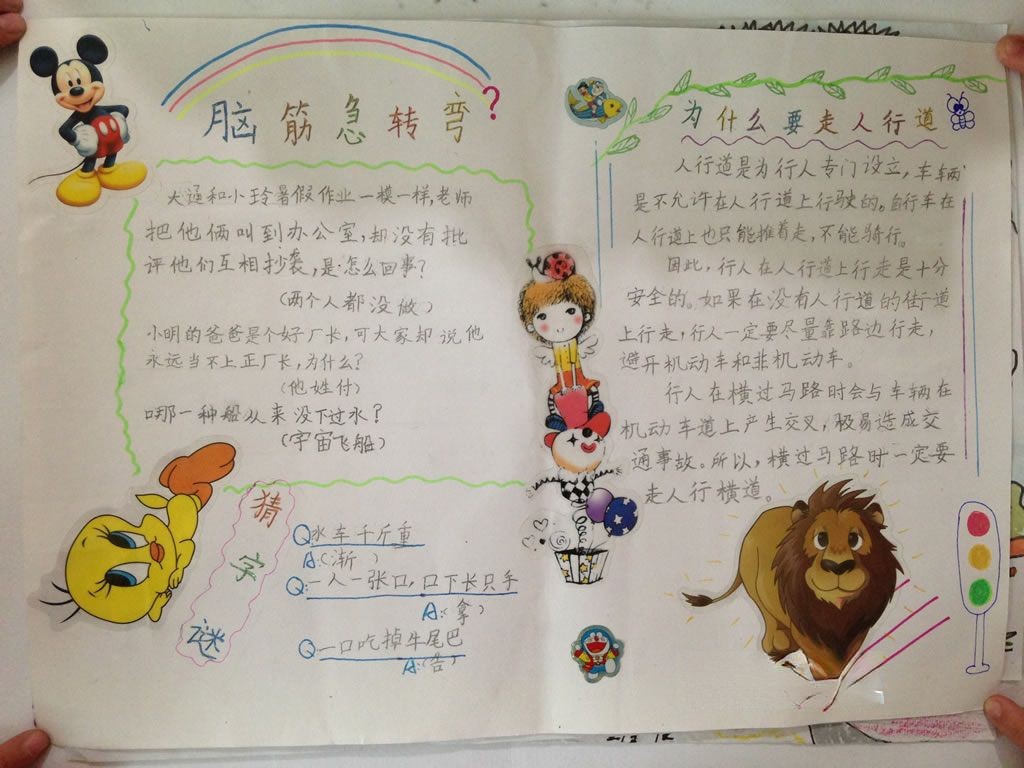 脑筋急转弯?
大通和小玲暑假作业一模一样,老师
把他俩叫到办公室,却没有批
评他们互相抄袭,是怎么回事?
(两个人都没做)
小明的爸爸是个好厂长,可大家却说他
永远当不上正厂长,为什么?
(他姓付)
哪一种船从来没下过水?
(宇宙飞船)
猜字谜
Q水车千斤重
A:(渐)
Q:一人一张口,口下长只手
A:(拿)
Q:一口吃掉牛尾巴
A:(告)
为什么要走人行道
人行道是为行人专门设立,车辆
是不允许在人行道上行驶的。自行车在
人行道上也只能推着走,不能骑行。
因此,行人在人行道上行走是十分
安全的。如果在没有人行道的街道
上行走,行人一定要尽量靠路边行走,
避开机动车和非机动车。
行人在横过马路时会与车辆在
机动车道上产生交叉,极易造成交
通事故。所以,横过马路时一定要
走人行横道。